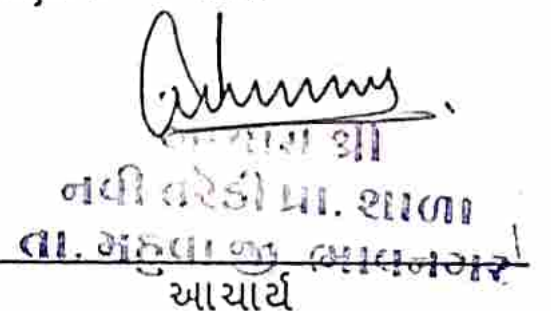 આચાર્ય શ્રી
નવી તરેડી પ્રા. શાળા
તા. મહુવા જી ભાવનગર
આચાર્ય